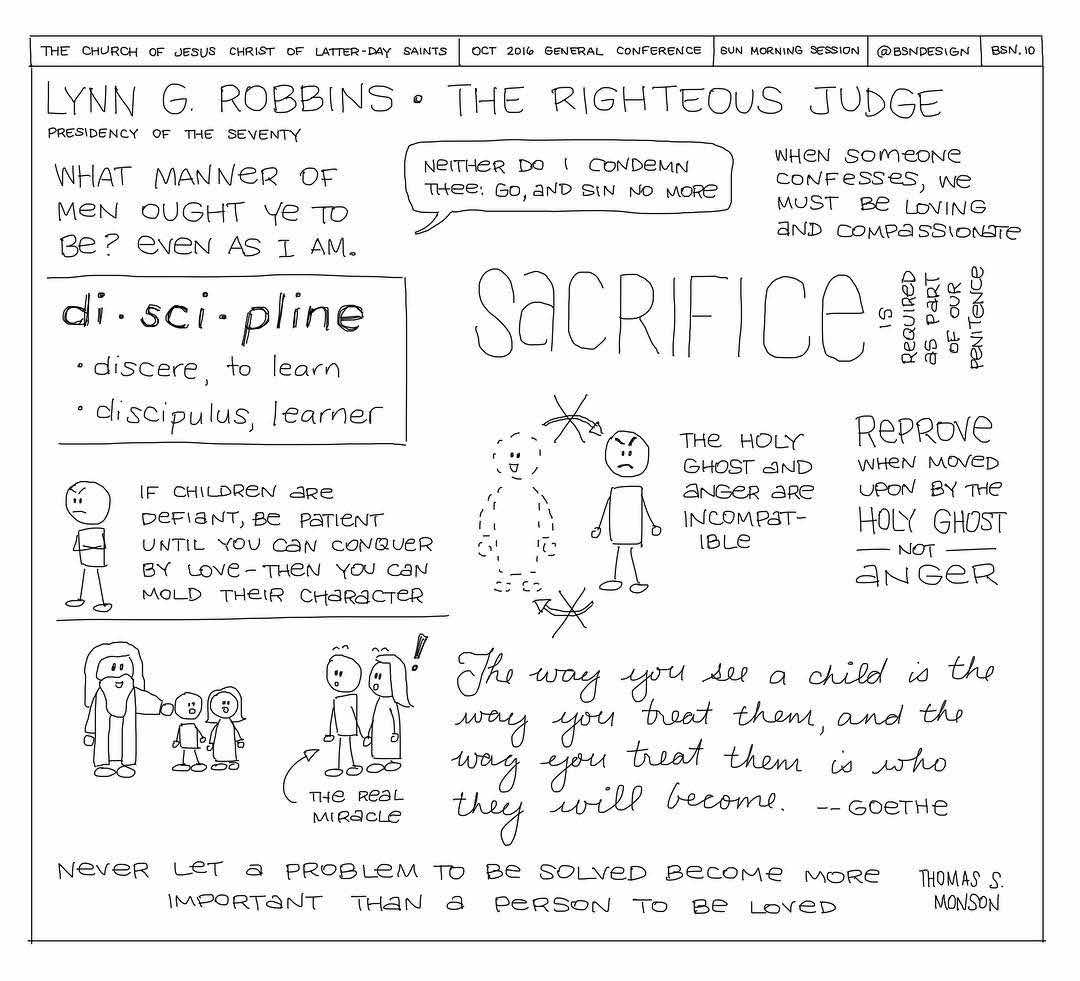 THE CHURCH OF JESUS CHRIST OF LATTER-DAY SAINTS
OCT 2016 GENERAL CONFERENCE
SUN MORNING SESSION
@BSNDESIGN
BSN.10
LYNN G. ROBBINS • THE RIGHTEOUS JUDGE
PRESIDENCY OF THE SEVENTY
WHAT MANNER OF
MEN OUGHT YE TO
BE? EVEN AS I AM.
NEITHER DO I CONDEMN
THEE: GO, AND SIN NO MORE
WHEN SOMEONE
CONFESSES, WE
MUST BE LOVING
AND COMPASSIONATE
di • sci • pline
• discere, to learn
• discipulus, learner
SACRIFICE
IS
REQUIRED
AS PART
OF OUR
PENITENCE
IF CHILDREN ARE
DEFIANT, BE PATIENT
UNTIL YOU CAN CONQUER
BY LOVE – THEN YOU CAN
MOLD THEIR CHARACTER
THE HOLY
GHOST AND
ANGER ARE
INCOMPAT-
IBLE
REPROVE
WHEN MOVED
UPON BY THE
HOLY GHOST
— NOT —
ANGER
!
THE REAL
MIRACLE
The way you see a child is the
way you treat them, and the
way you treat them is who
they will become. -- GOETHE
NEVER LET A PROBLEM TO BE SOLVED BECOME MORE
IMPORTANT THAN A PERSON TO BE LOVED
THOMAS S.
MONSON